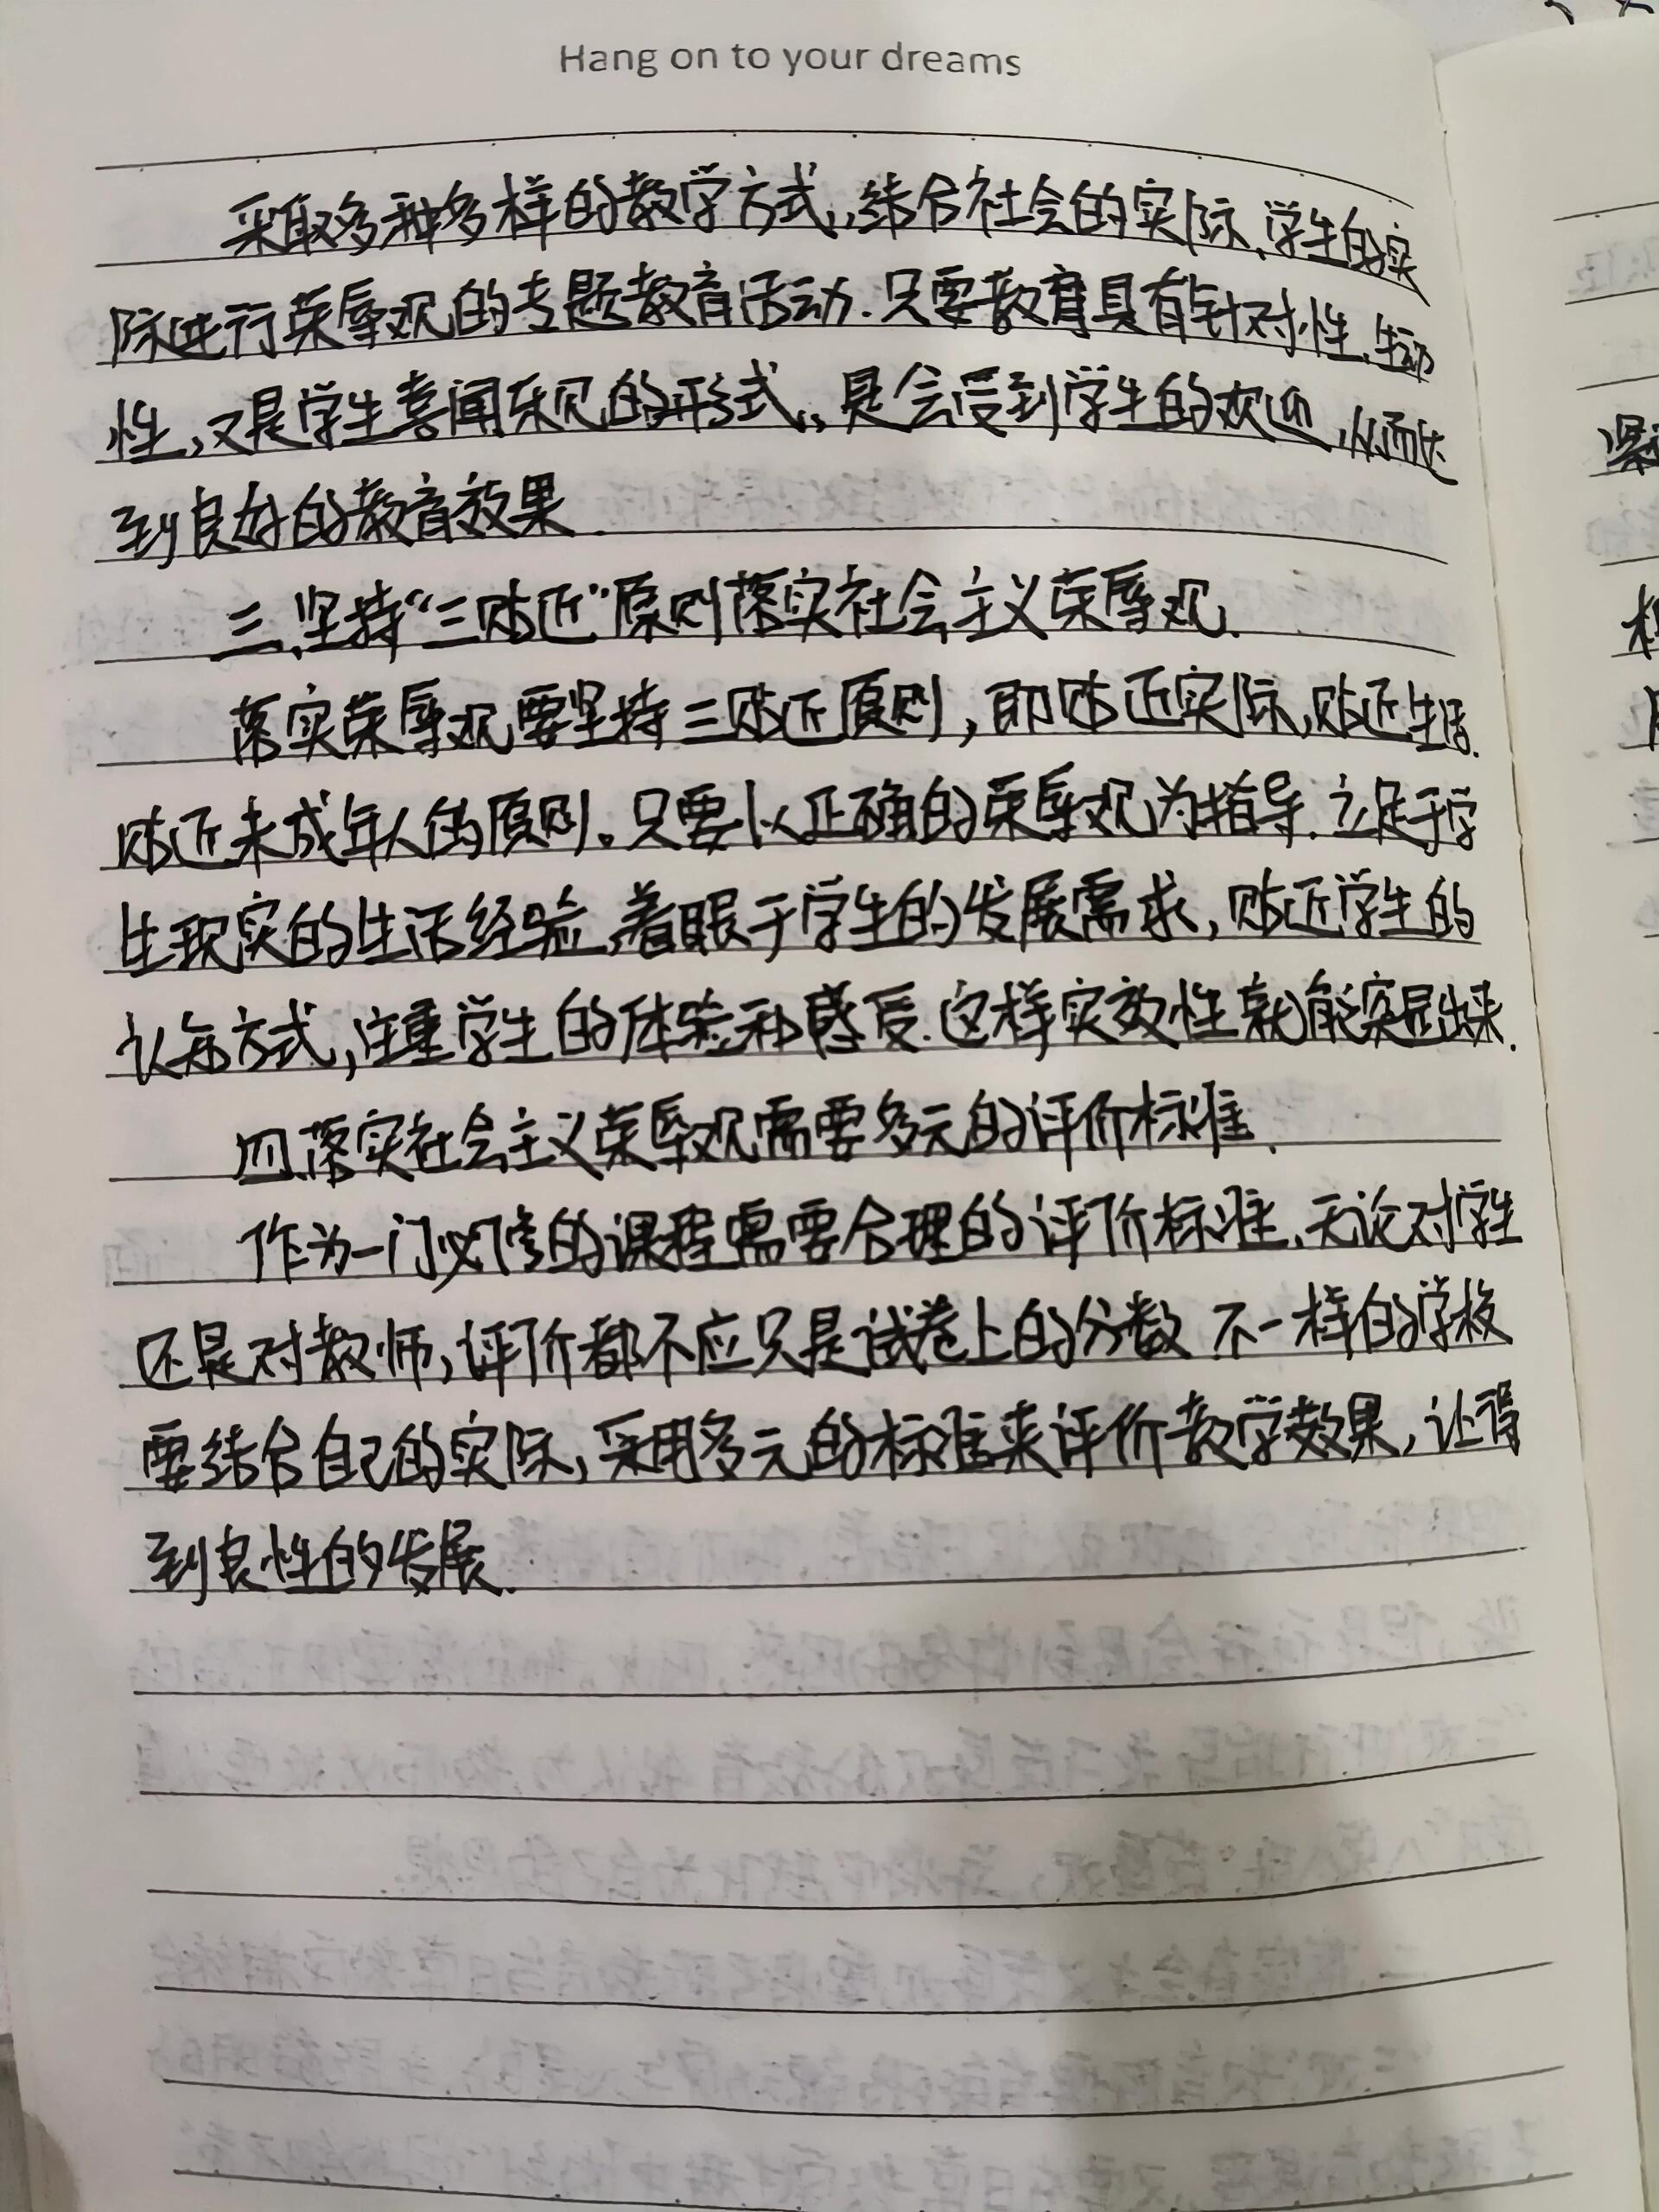 Hang on to your dreams
采取多种多样的教学方式，结合社会的实际、学生的实
际进行荣辱观的专题教育活动.只要教育具有针对性、生动
性，又是学生喜闻乐见的形式，是会受到学生的欢迎，从而达
到良好的教育效果.
三、坚持“三贴近”原则落实社会主义荣辱观.
落实荣辱观，要坚持三贴近原则，即贴近实际，贴近生活.
贴近未成年人的原则。只要以正确的荣辱观为指导.立足于学
生现实的生活经验，着眼于学生的发展需求，贴近学生的
认知方式，注重学生的体验和感受.这样实效性就能突显出来.
四、落实社会主义荣辱观需要多元的评价标准.
作为一门必修的课程需要合理的评价标准，无论对学生
还是对教师，评价都不应只是试卷上的分数 不一样的学校
要结合自己的实际，采用多元的标准来评价教学效果，让得
到良性的发展.